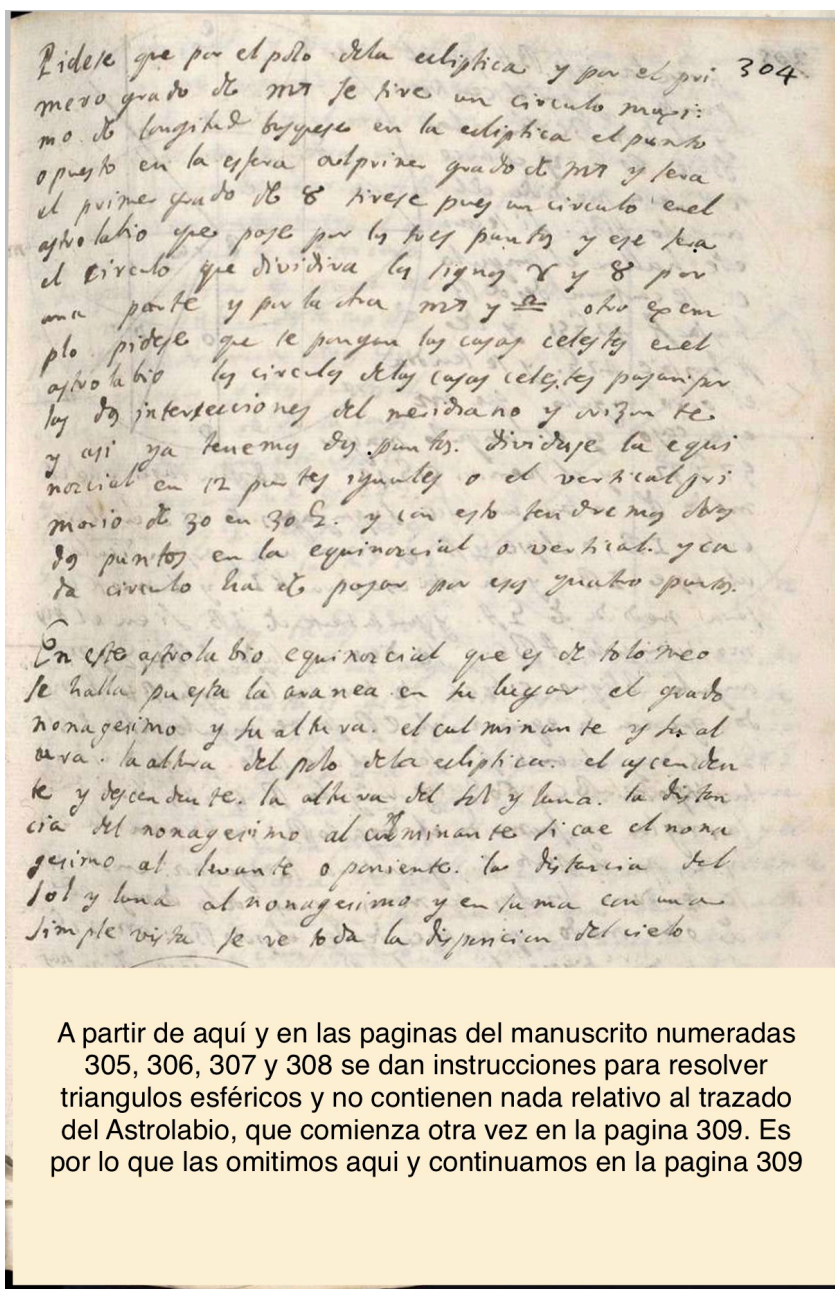 Pidese que por el polo dela ecliptica y por el pri 304
mero grado de ♏ se tire un circulo maxi:
mo de longitud busquese en la ecliptica el punto
opuesto en la esfera al primer grado de ♏ y sera
el primer grado de ♉ tirese pues un circulo en el
astrolabio que pase por los tres puntos y ese sera
el circulo que dividira los signos ♈ y ♉ por
una parte y por la otra ♏ y ♎ otro exem
plo pidese que se pongan las casas celestes en el
astrolabio los circulos delas casas celestes pasan por
las dos intersecciones del meridiano y orizonte
y asi ya tenemos dos puntos. dividase la equi
noxcial en 12 partes iguales o el vertical pri
mario de 30 en 30 G. y con esto tendremos otros
dos puntos en la equinoxcial o vertical. y ca
da circulo ha de pasar por esos quatro puntos.
En este astrolabio equinoxcial que es de tolomeo
se halla puesta la aranea en su lugar el grado
nonagesimo y su altura. el culminante y su al
tura. la altura del polo dela ecliptica. el ascenden
te y descendente. la altura del sol y luna. la distan
cia del nonagesimo al culminante si cae el nona
gesimo al levante o poniente. la distancia del
sol y luna al nonagesimo y en suma con una
simple vista se ve toda la disposicion del cielo
A partir de aquí y en las paginas del manuscrito numeradas
305, 306, 307 y 308 se dan instrucciones para resolver
triangulos esféricos y no contienen nada relativo al trazado
del Astrolabio, que comienza otra vez en la pagina 309. Es
por lo que las omitimos aqui y continuamos en la pagina 309